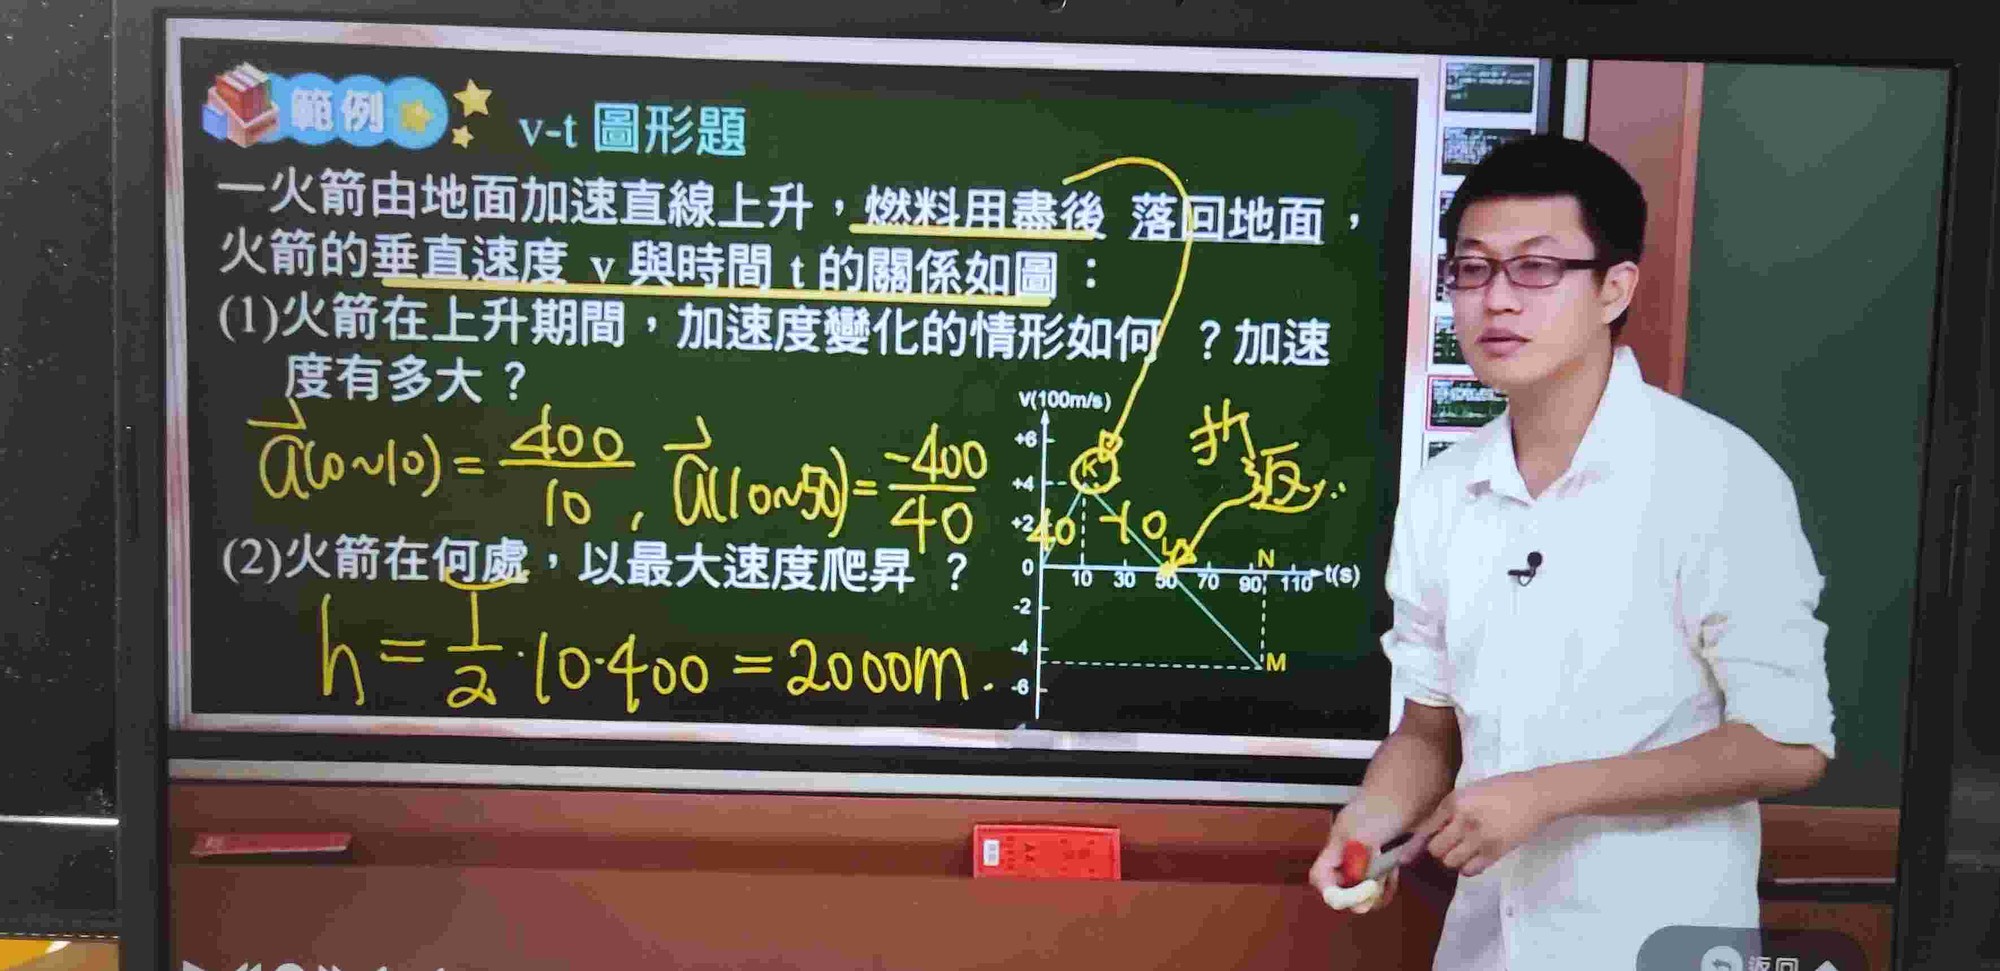 範例
v-t 圖形題
一火箭由地面加速直線上升，燃料用盡後 落回地面，
火箭的垂直速度 v 與時間 t 的關係如圖：
(1)火箭在上升期間，加速度變化的情形如何 ？加速
度有多大？
a(0~10) = 400/10 , a(10~50) = -400/40
(2)火箭在何處，以最大速度爬昇 ？
h = 1/2 · 10 · 400 = 2000m .
v(100m/s)
+6
+4
+2
0
-2
-4
-6
K
40
-10
L
N
M
10 30 50 70 90 110 t(s)
折返
返回